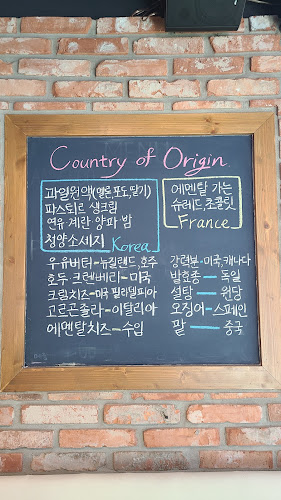 Country of Origin
과일원액(멜론,포도,딸기)
파스퇴르 생크림
연유 계란 양파 밤
청양소세지
Korea
에멘탈 가는
슈레드, 초콜릿
France
우유버터-뉴질랜드,호주
호두 크렌베리-미국
크림치즈-미국 필라델피아
고르곤졸라-이탈리아
에멘탈치즈-수입
강력분-미국,캐나다
발효종-독일
설탕-원당
오징어-스페인
팥-중국